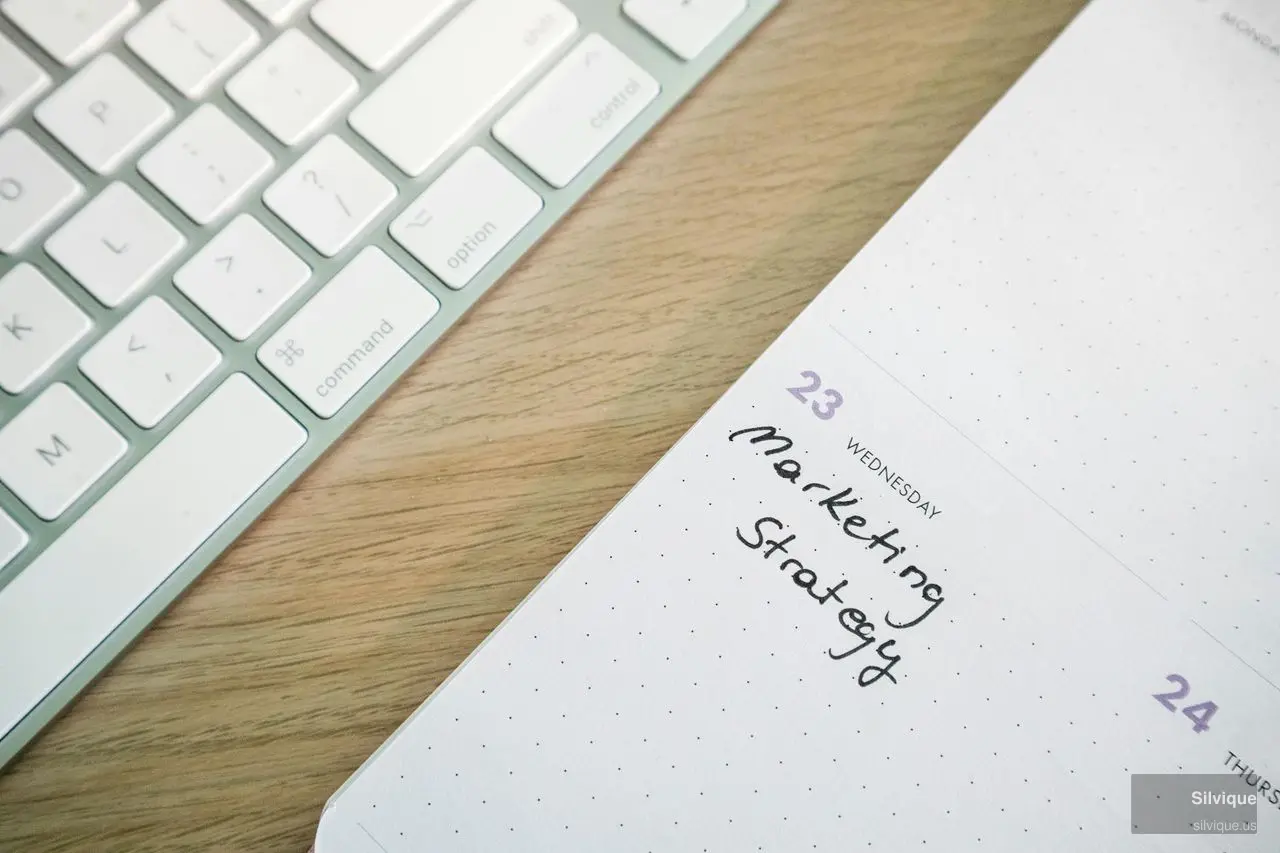 shift
P
control
O
?
/
L
option
>
.
K
command
<
,
M
MONDA
23
WEDNESDAY
Marketing
Strategy
24
THURS
Silvique
silvique.us